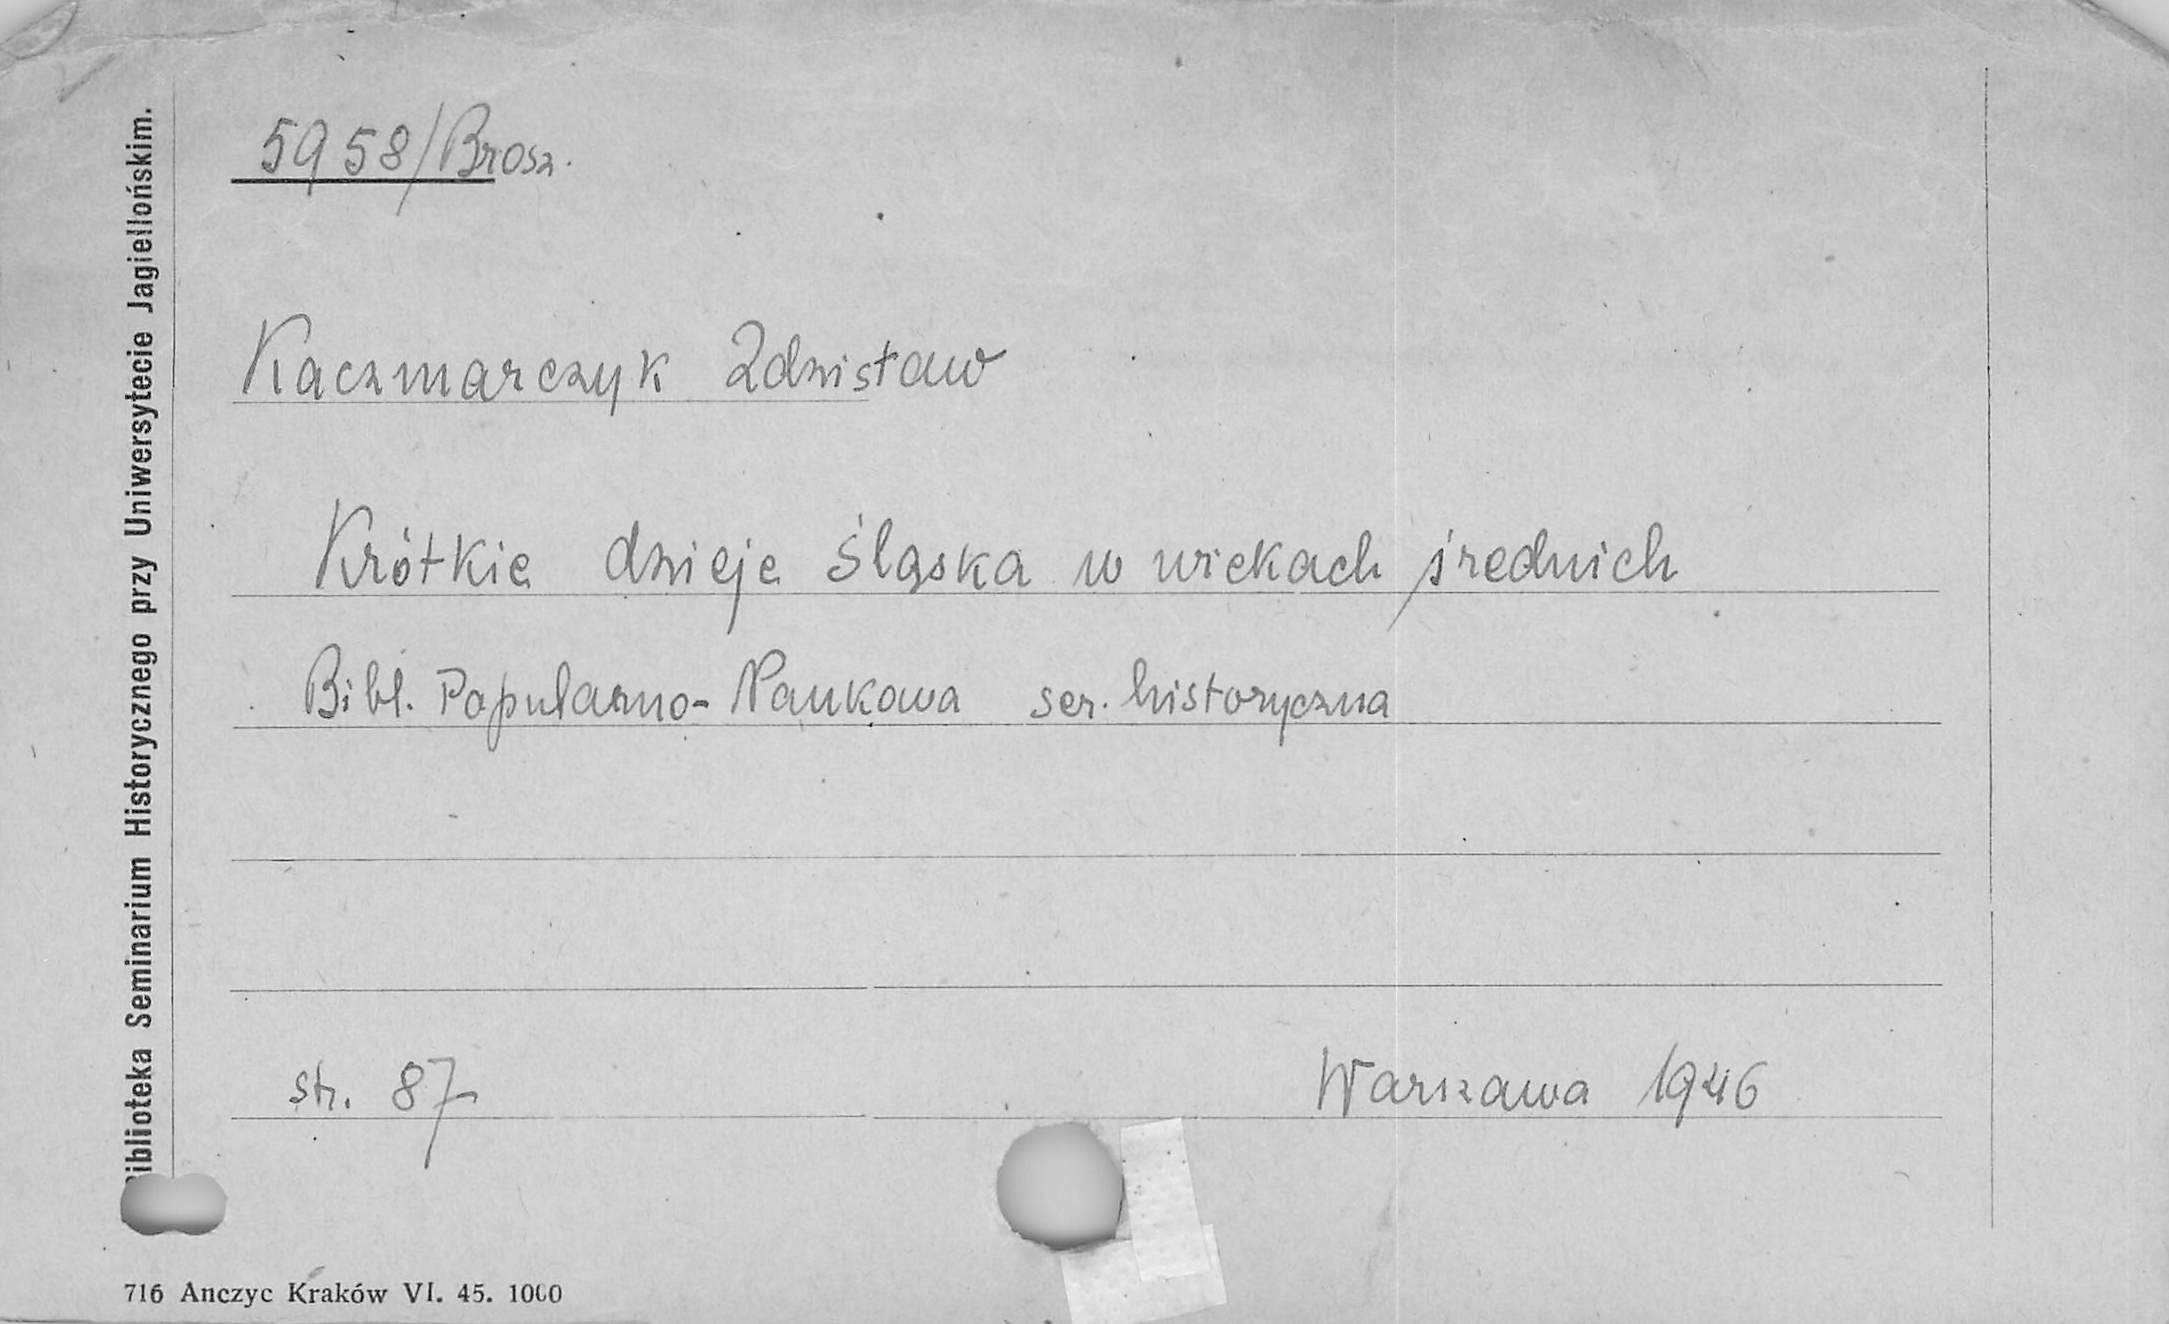 Biblioteka Seminarium Historycznego przy Uniwersytecie Jagiellońskim.
5958/Brosz.
Kaczmarczyk Zdzisław
Krótkie dzieje Śląska w wiekach średnich
Bibl. Popularno-Naukowa ser. historyczna
str. 87
Warszawa 1946
716 Anczyc Kraków VI. 45. 1000